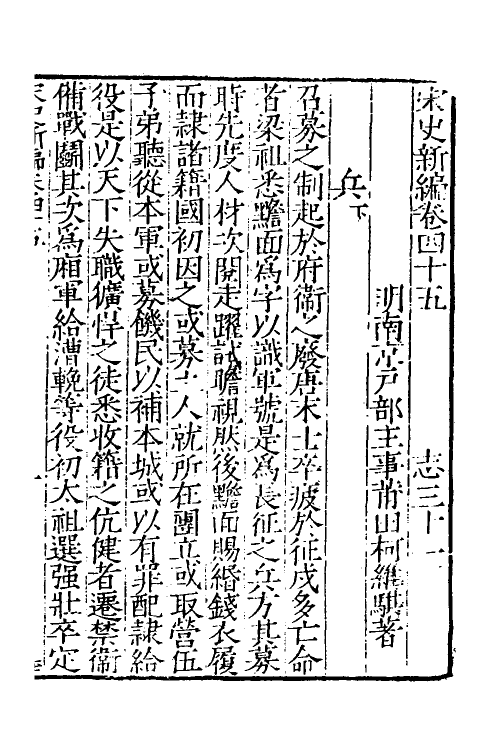 宋史新編卷四十五 志三十一
明南京戶部主事莆田柯維騏著
兵下
召募之制起於府衞之廢唐末士卒疲於征戍多亡命
者梁祖悉黵面爲字以識軍號是爲長征之兵方其募
時先度人材次閱走躍試瞻視然後黵面賜緡錢衣履
而隷諸籍國初因之或募土人就所在團立或取營伍
子弟聽從本軍或募饑民以補本城或以有罪配隷給
役是以天下失職獷悍之徒悉收籍之伉健者遷禁衞
備戰鬬其次爲廂軍給漕輓等役初太祖選强壯卒定